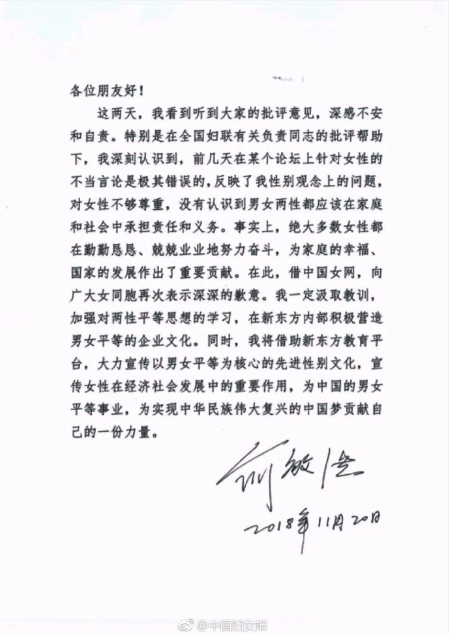 各位朋友好！
这两天，我看到听到大家的批评意见，深感不安
和自责。特别是在全国妇联有关负责同志的批评帮助
下，我深刻认识到，前几天在某个论坛上针对女性的
不当言论是极其错误的，反映了我性别观念上的问题，
对女性不够尊重，没有认识到男女两性都应该在家庭
和社会中承担责任和义务。事实上，绝大多数女性都
在勤勤恳恳、兢兢业业地努力奋斗，为家庭的幸福、
国家的发展作出了重要贡献。在此，借中国女网，向
广大女同胞再次表示深深的歉意。我一定汲取教训，
加强对两性平等思想的学习，在新东方内部积极营造
男女平等的企业文化。同时，我将借助新东方教育平
台，大力宣传以男女平等为核心的先进性别文化，宣
传女性在经济社会发展中的重要作用，为中国的男女
平等事业，为实现中华民族伟大复兴的中国梦贡献自
己的一份力量。
俞敏洪
2018年11月20日
@中国妇女报